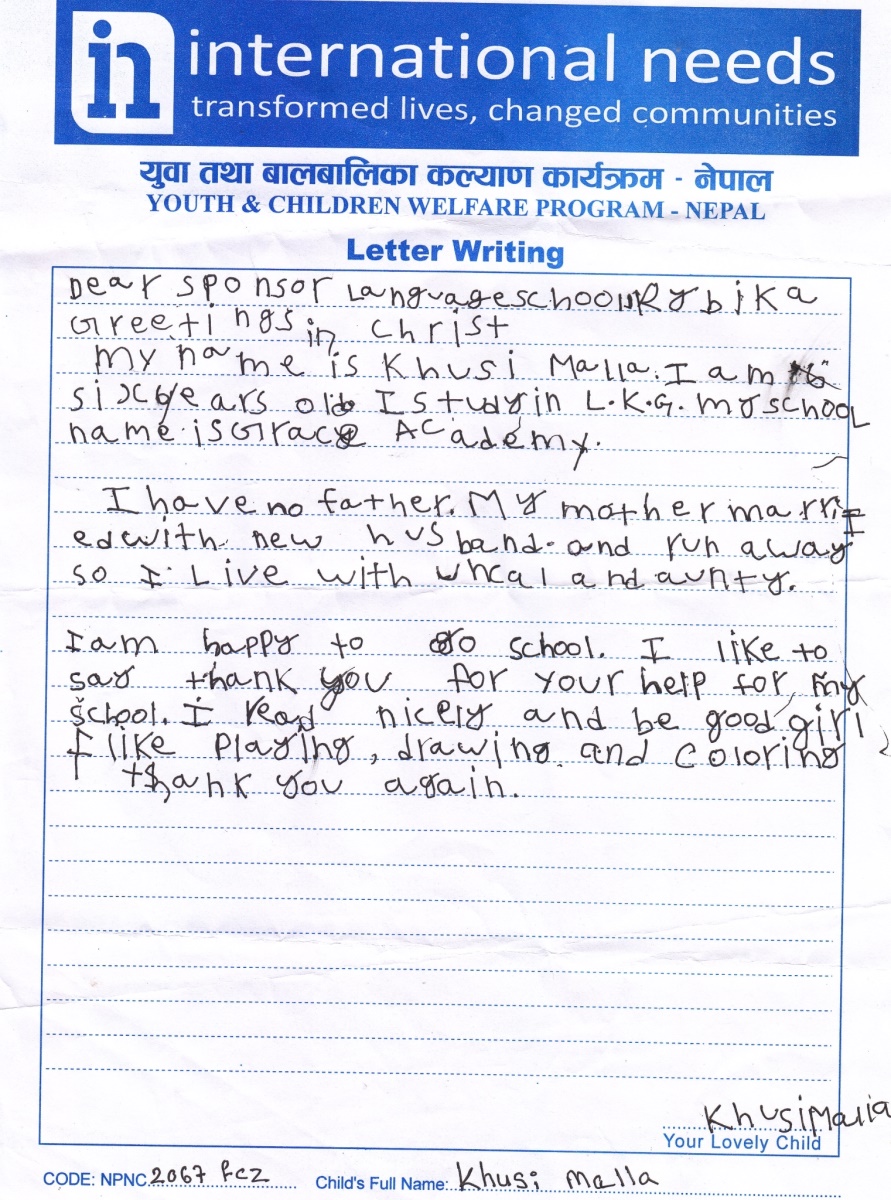 in international needs
transformed lives, changed communities
युवा तथा बालबालिका कल्याण कार्यक्रम - नेपाल
YOUTH & CHILDREN WELFARE PROGRAM - NEPAL
Letter Writing
Dear sponsor Languageschool Rybika
Greetings in Christ
My name is Khusi Malla. I am
six years old I study in L.K.G. my school
name is Grace Academy.
I have no father. My mother marri
ed with new husband and run away
so I Live with uncal and aunty.
I am happy to go school. I like to
say thank you for your help for my
school. I read nicely and be good girl
I like playing, drawing and coloring
thank you again.
Khusi Malla
Your Lovely Child
CODE: NPNC 2067 fcz Child's Full Name: Khusi Malla